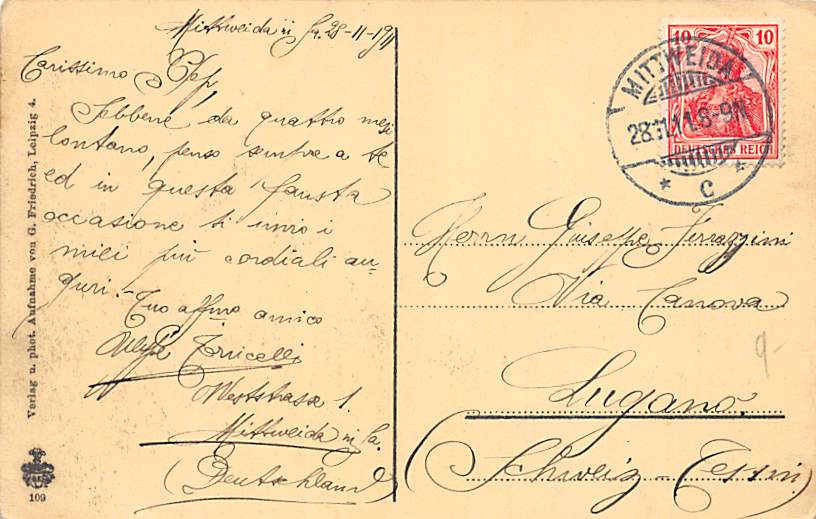 Mittweida i/ Sa. 28-11-1911
Carissimo Pep,
Sebbene da quattro mesi
lontano, penso sempre a te
ed in questa fausta
occasione ti invio i
miei più cordiali au-
guri.-
Tuo affmo amico
Torricelli
Weststrasse 1.
Mittweida i/Sa.
(Deutschland)
Verlag u. phot. Aufnahme von G. Friedrich, Leipzig 4.
109
10 10
DEUTSCHES REICH
MITTWEIDA
28.11.11.8-9N
* C *
Herrn Giuseppe Ferazzini
Via Canova
Lugano.
(Schweiz-Tessin)
9-